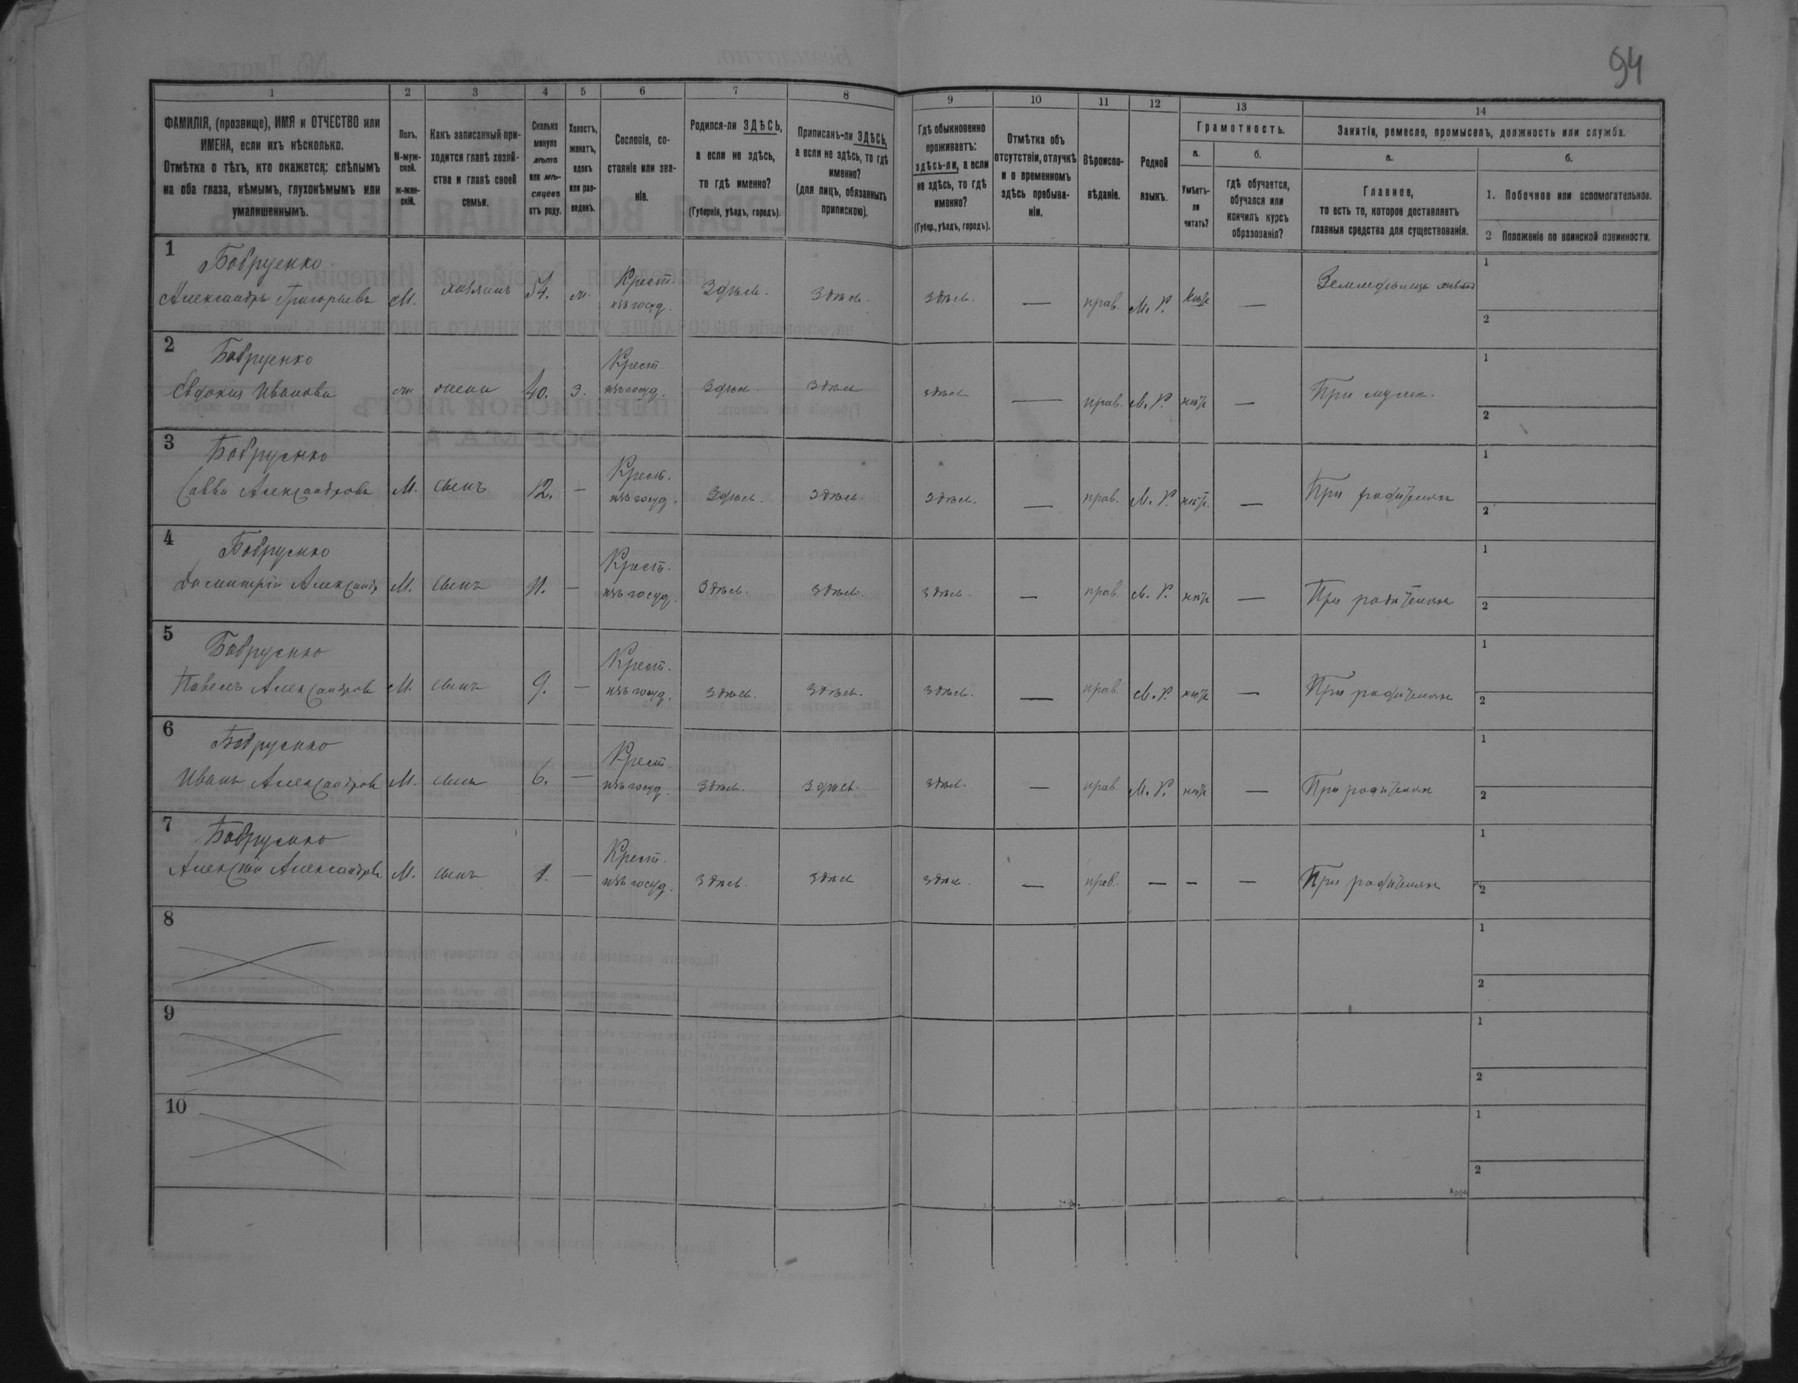 94
1 2 3 4 5 6 7 8 9 10 11 12 13 14
ФАМИЛІЯ, (прозвище), ИМЯ и ОТЧЕСТВО или
ИМЕНА, если ихъ нѣсколько.
Отмѣтка о тѣхъ, кто окажется: слѣпымъ
на оба глаза, нѣмымъ, глухонѣмымъ или
умалишеннымъ.
Полъ.
М-муж-
ской.
ж-жен-
скій.
Какъ записанный при-
ходится главѣ хозяй-
ства и главѣ своей
семьи.
Сколько
минуло
лѣтъ
или мѣ-
сяцевъ
отъ роду.
Холостъ,
женатъ,
вдовъ
или раз-
веденъ.
Сословіе, со-
стояніе или зва-
ніе.
Родился-ли ЗДѢСЬ,
а если не здѣсь,
то гдѣ именно?
(Губернія, уѣздъ, городъ).
Приписанъ-ли ЗДѢСЬ,
а если не здѣсь, то гдѣ
именно?
(для лицъ, обязанныхъ
припискою).
Гдѣ обыкновенно
проживаетъ:
здѣсь-ли, а если
не здѣсь, то гдѣ
именно?
(Губер., уѣздъ, городъ).
Отмѣтка объ
отсутствіи, отлучкѣ
и о временномъ
здѣсь пребыва-
ніи.
Вѣроиспо-
вѣданіе.
Родной
языкъ.
Грамотность.
а.
Умѣетъ-
ли
читать?
б.
гдѣ обучается,
обучался или
кончилъ курсъ
образованія?
Занятіе, ремесло, промыселъ, должность или служба.
а.
Главное,
то есть то, которое доставляетъ
главныя средства для существованія.
б.
1. Побочное или вспомогательное.
2 Положеніе по воинской повинности.
1
Бовруенко
Александръ Григорьевъ М. хозяинъ 54. Крест. изъ госуд. Здѣсь. Здѣсь. Здѣсь. — прав. М. Р. —
1
2
2
Бовруенко
Евдокия Иванова жена 40. з. Крест. изъ госуд. Здѣсь. Здѣсь Здѣсь — прав. М. Р. нѣтъ — При мужѣ.
1
2
3
Бовруенко
Савва Александровъ М. сынъ 12. — Крест. изъ госуд. Здѣсь. Здѣсь. Здѣсь. — прав. М. Р. нѣтъ — При родителяхъ
1
2
4
Бовруенко
М. сынъ 11. — Крест. изъ госуд. Здѣсь. Здѣсь. Здѣсь. — прав. М. Р. нѣтъ — При родителяхъ
1
2
5
Бовруенко
Павелъ Александровъ М. сынъ 9. — Крест. изъ госуд. Здѣсь. Здѣсь. Здѣсь. — прав. М. Р. нѣтъ — При родителяхъ
1
2
6
Бовруенко
Иванъ Александровъ М. сынъ 6. — Крест изъ госуд. Здѣсь. Здѣсь. Здѣсь. — прав. М. Р. нѣтъ — При родителяхъ
1
2
7
Бовруенко
Алексѣй Александровъ М. сынъ 1. — Крест. изъ госуд. Здѣсь. Здѣсь Здѣсь — прав. — — — При родителяхъ
1
2
8
1
2
9
1
2
10
1
2